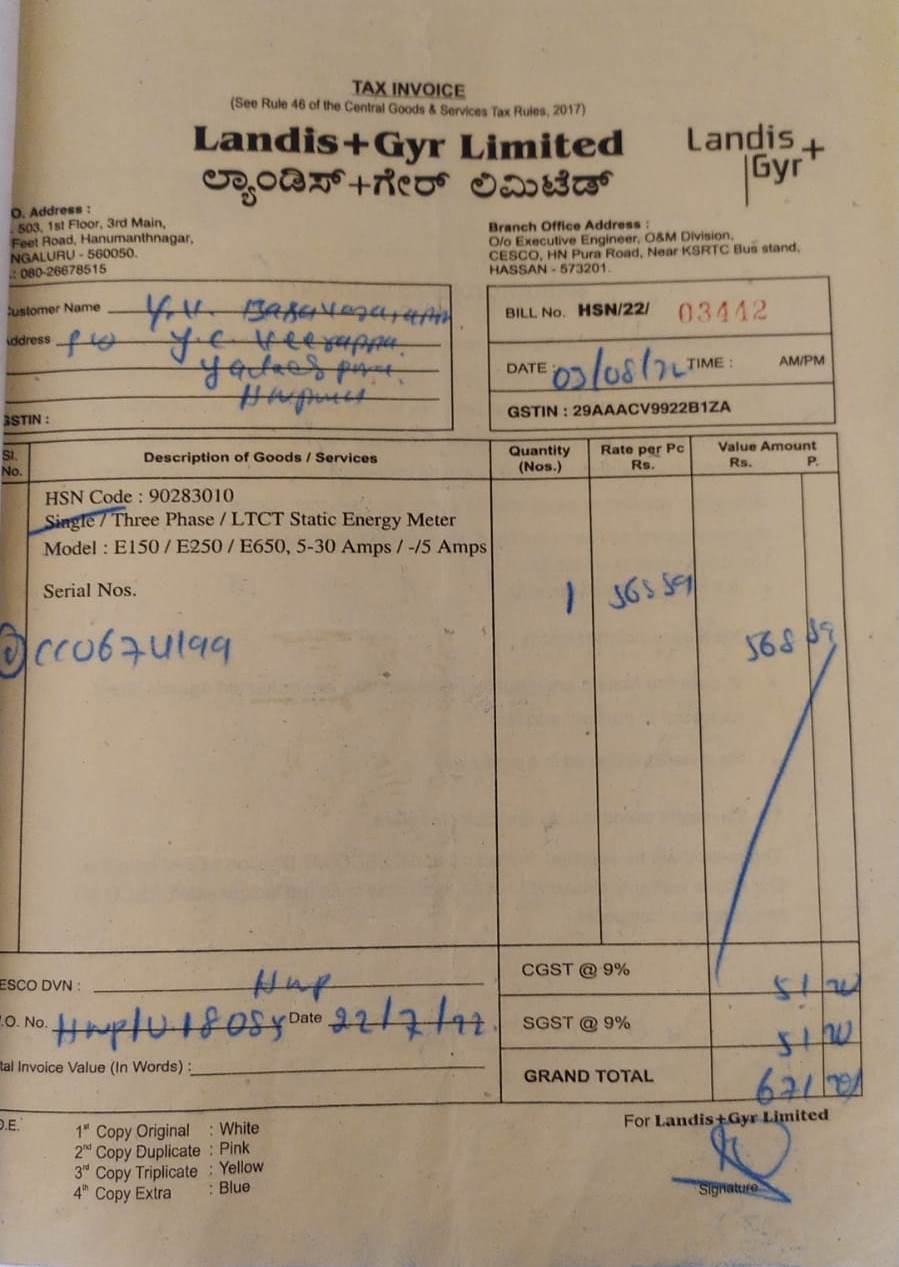 TAX INVOICE
(See Rule 46 of the Central Goods & Services Tax Rules, 2017)
Landis+Gyr Limited
Landis+
Gyr
ಲ್ಯಾಂಡಿಸ್+ಗೇರ್ ಲಿಮಿಟೆಡ್
O. Address :
503, 1st Floor, 3rd Main,
Feet Road, Hanumanthnagar,
NGALURU - 560050.
.: 080-26678515
Branch Office Address :
O/o Executive Engineer, O&M Division,
CESCO, HN Pura Road, Near KSRTC Bus stand,
HASSAN - 573201.
Customer Name Y.V.
Address Y.C. Veerappa
GSTIN :
BILL No. HSN/22/ 03442
DATE : 03/08/22 TIME : AM/PM
GSTIN : 29AAACV9922B1ZA
Sl. No. Description of Goods / Services Quantity (Nos.) Rate per Pc Rs. Value Amount Rs. P.
HSN Code : 90283010
Single / Three Phase / LTCT Static Energy Meter
Model : E150 / E250 / E650, 5-30 Amps / -/5 Amps
Serial Nos. 1 568 59
568 59
CGST @ 9% 51
ESCO DVN : Hnp
.O. No. Date 22/7/22
SGST @ 9% 51
tal Invoice Value (In Words) :
GRAND TOTAL 671
O.E.
For Landis+Gyr Limited
1st Copy Original : White
2nd Copy Duplicate : Pink
3rd Copy Triplicate : Yellow
4th Copy Extra : Blue
Signature